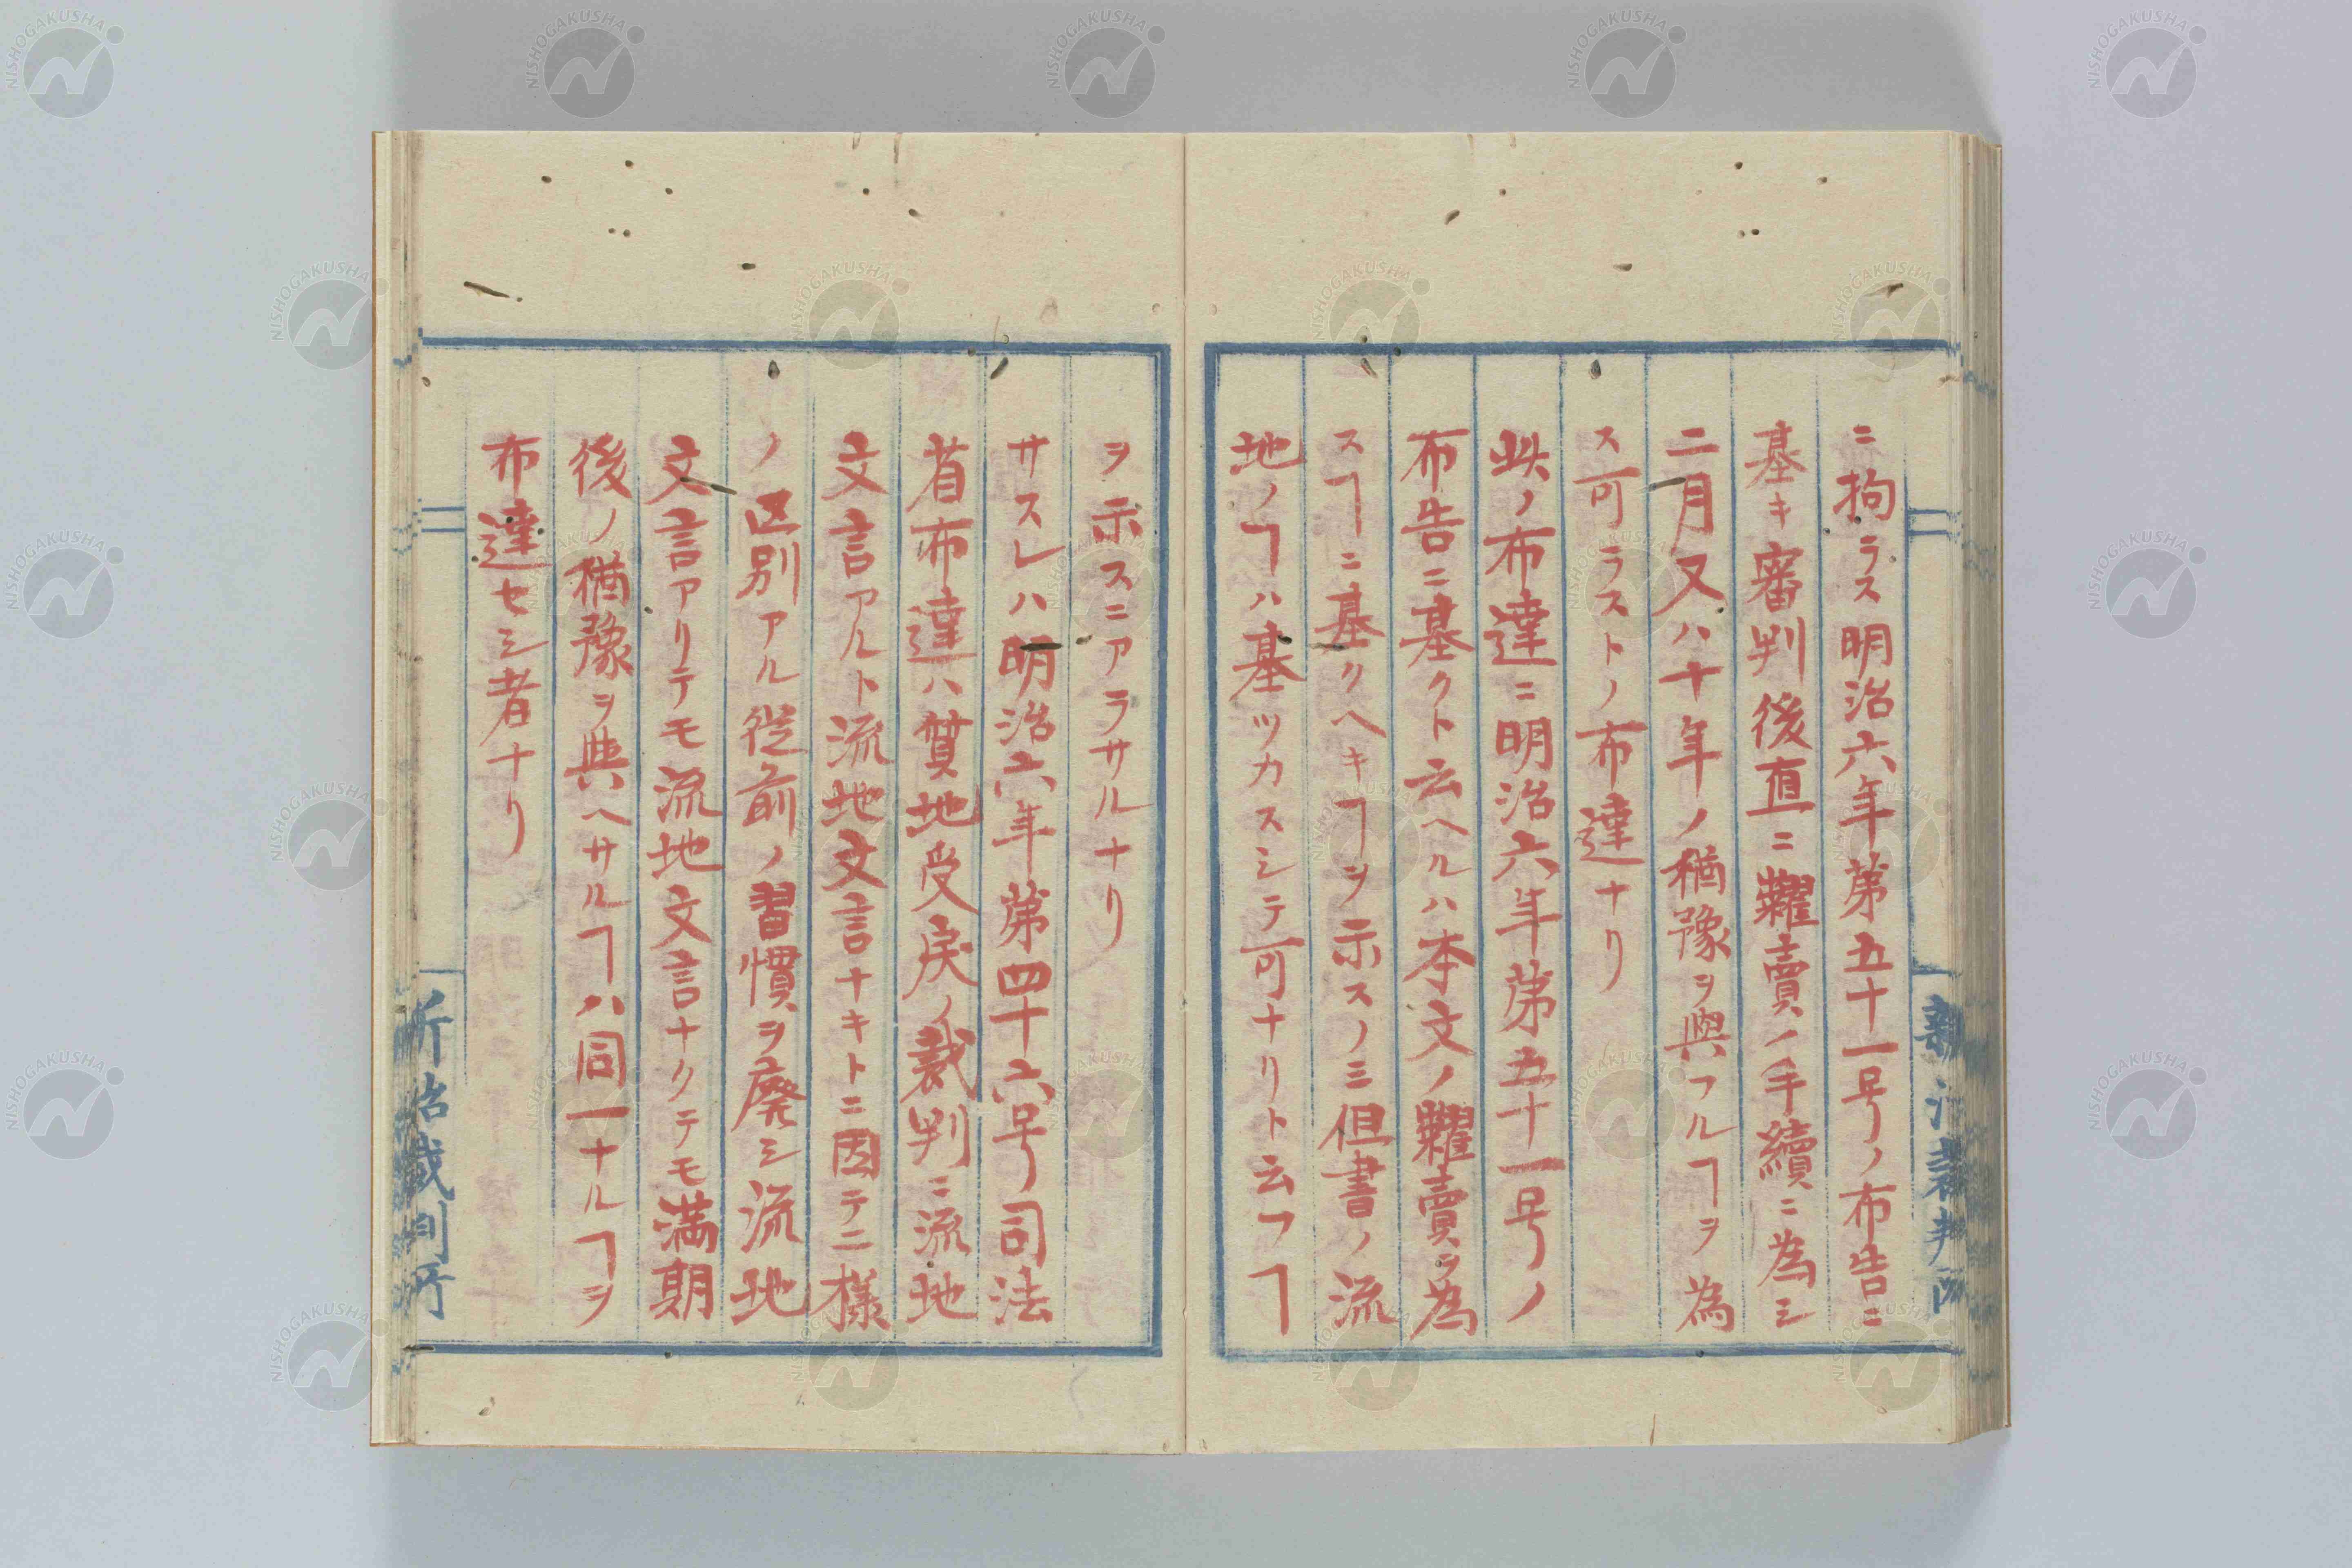 ニ拘ラス明治六年第五十一号ノ布告ニ
基キ審判後直ニ糶賣ノ手續ニ為シ
二月又ハ十年ノ猶豫ヲ與フルヿヲ為
ス可ラストノ布達ナリ
此ノ布達ニ明治六年第五十一号ノ
布告ニ基クト云ヘルハ本文ノ糶賣ヲ為
スヿニ基クヘキヿヲ示スノミ但書ノ流
地ノヿハ基ツカスシテ可ナリト云フヿ
ヲ示スニアラサルナリ
サスレハ明治六年第四十六号司法
省布達ハ質地受戻ノ裁判ニ流地
文言アルト流地文言ナキトニ因テ二様
ノ区別アル従前ノ習慣ヲ廃シ流地
文言アリテモ流地文言ナクテモ満期
後ノ猶豫ヲ與ヘサルヿハ同一ナルヿヲ
布達セシ者ナリ
新治裁判所
新治裁判所
NISHOGAKUSHA